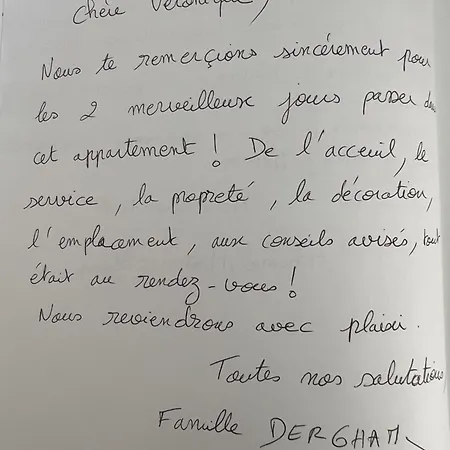 Chère Véronique,
Nous te remerçions sincérement pour
les 2 merveilleux jours passer dans
cet appartement ! De l'acceuil, le
service, la propreté, la décoration,
l'emplacement, aux conseils avisés, tout
était au rendez-vous !
Nous reviendrons avec plaisir.
Toutes nos salutations
Famille DERGHAM